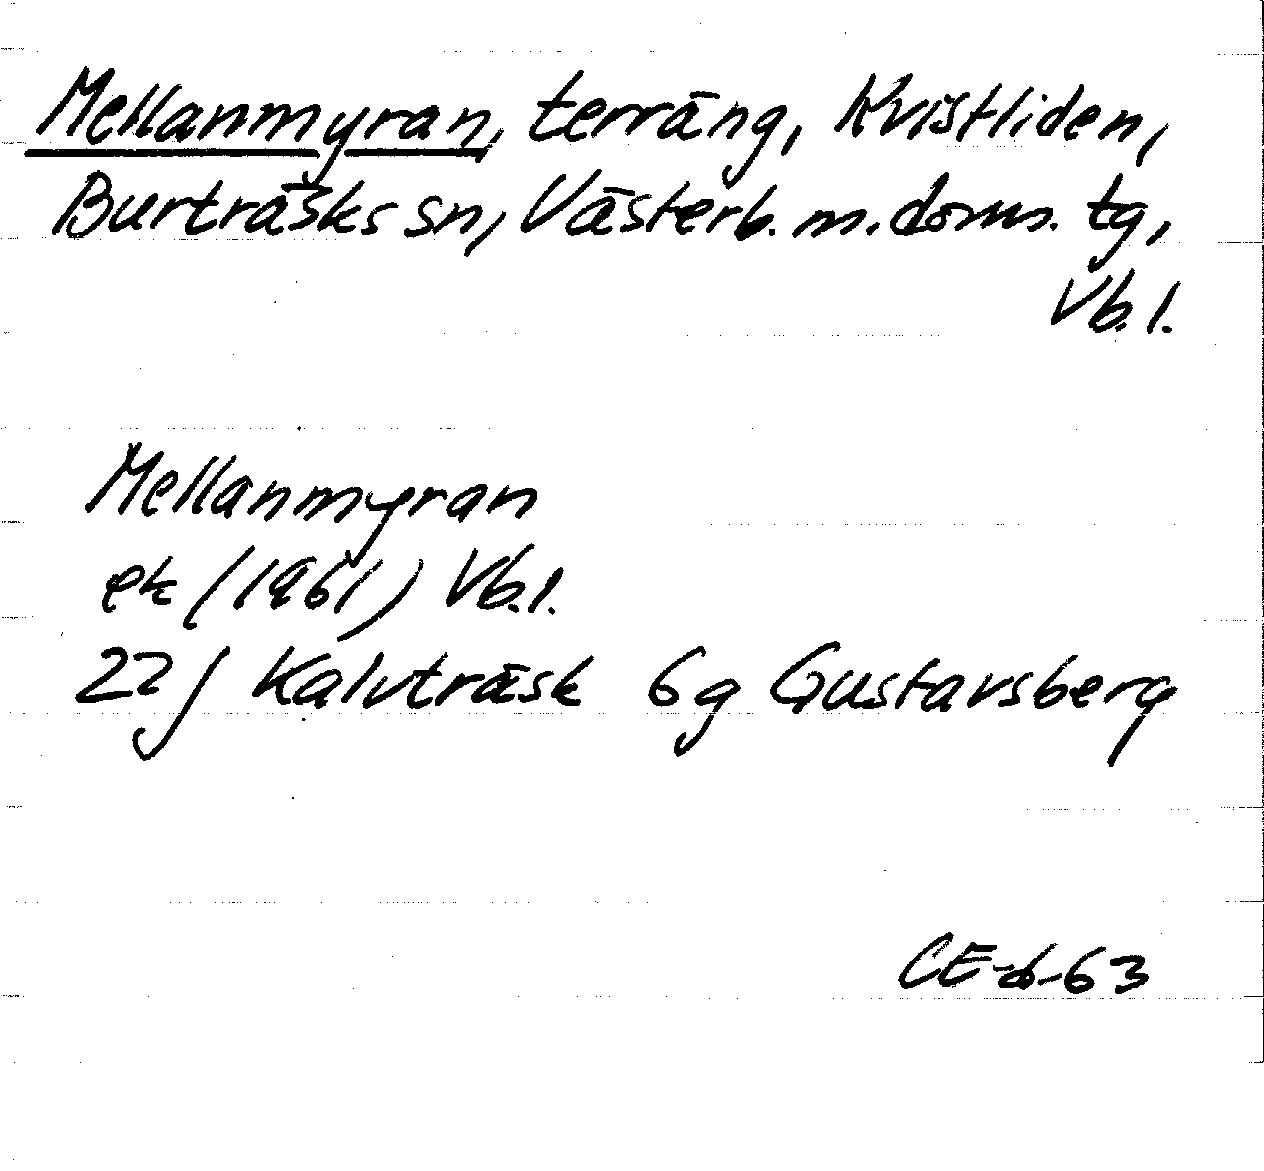 Mellanmyran, terräng, Kvistliden,
Burträsks sn, Västerb. m. doms. tg,
Vb. l.
Mellanmyran
ek (1961) Vb. l.
22 J Kalvträsk 6g Gustavsberg
CE-d-63